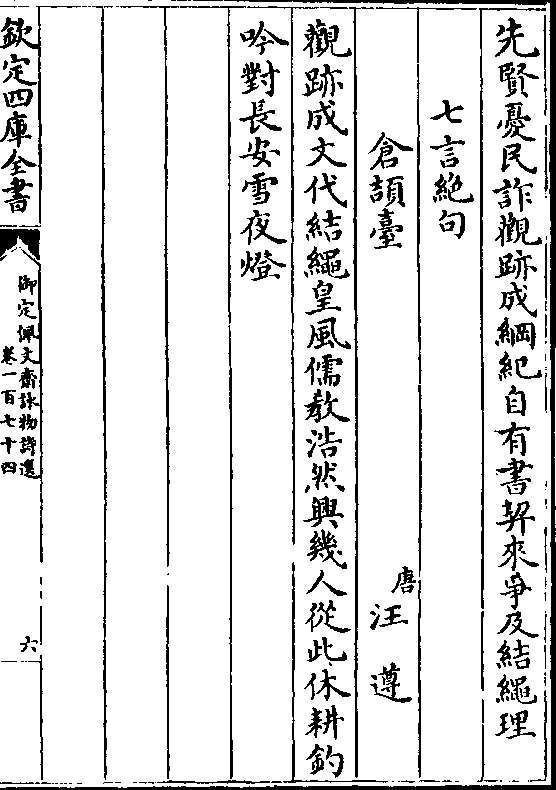 先賢憂民詐觀跡成綱紀自有書契來爭及結繩理
七言絶句
倉頡臺
唐汪遵
觀跡成文代結繩皇風儒教浩然興幾人從此休耕釣
吟對長安雪夜燈
欽定四庫全書
御定佩文齋詠物詩選
卷一百七十四
六